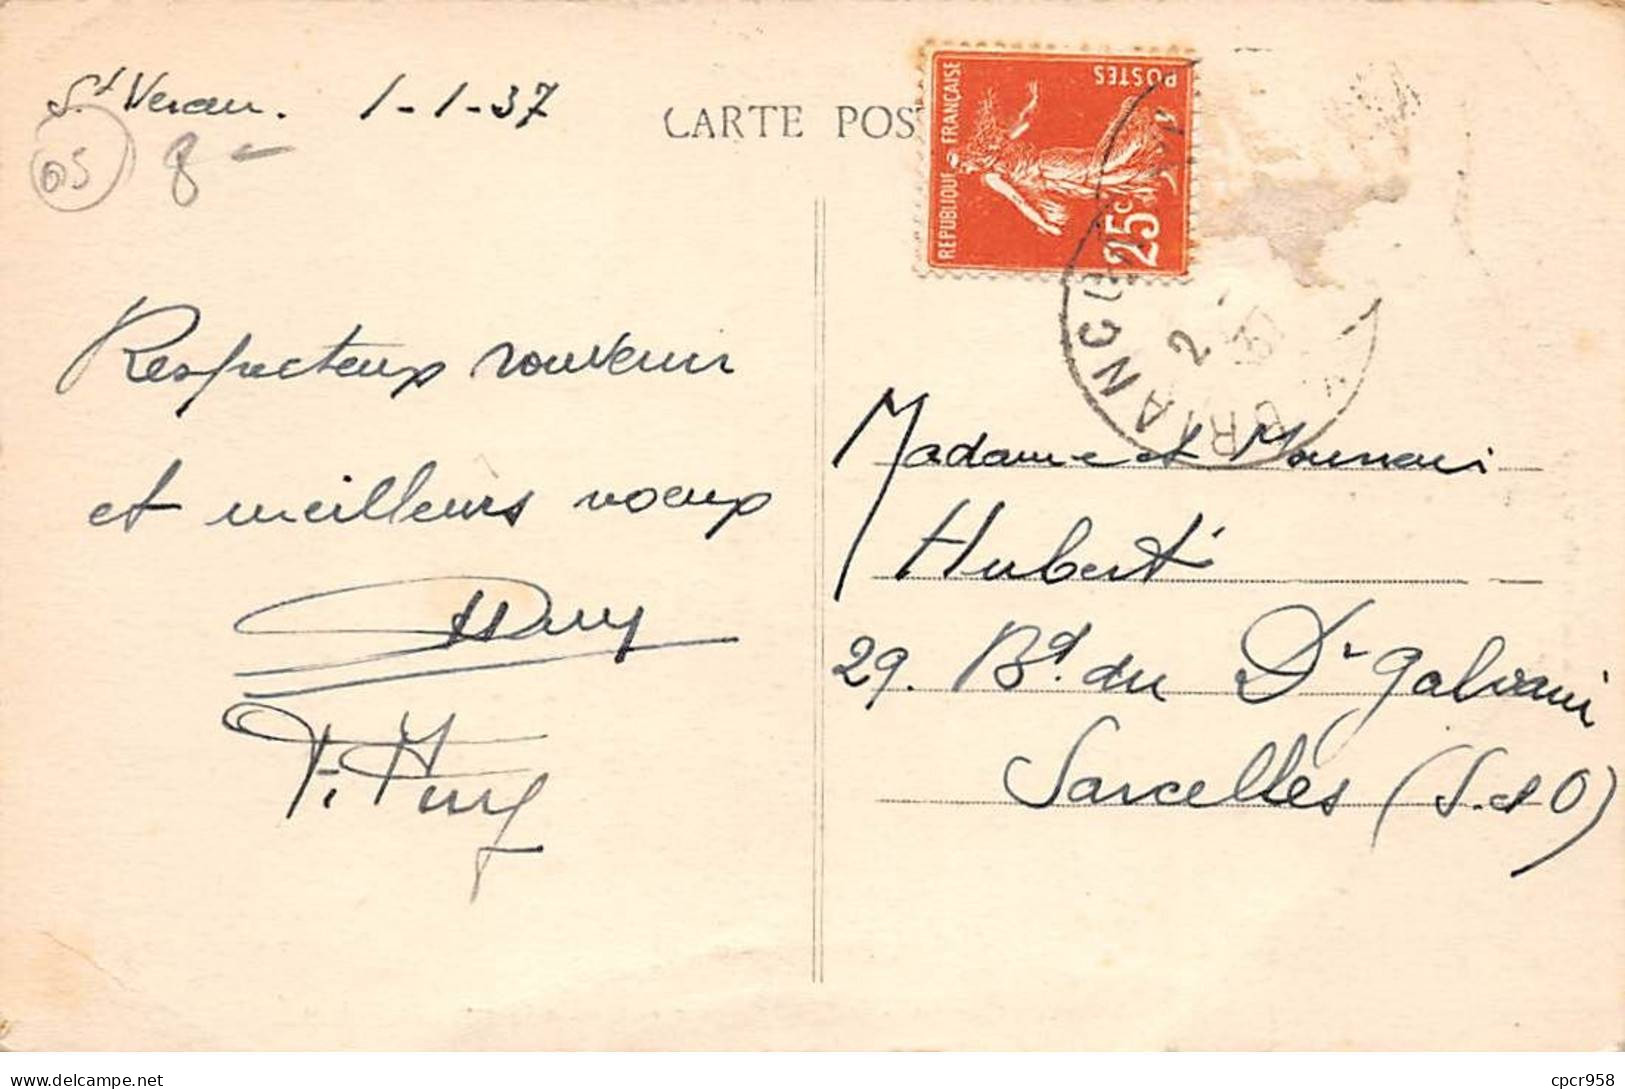 St Veran. 1-1-37
05 8-
CARTE POS
REPUBLIQUE FRANÇAISE
POSTES
25c
BRIANC
2
37
Respectueux souvenir
et meilleurs voeux
Madame et Monsieur
Hubert
29. Bd. du Dr Galvani
Sarcelles (S. et O)
delcampe.net
cpcr958